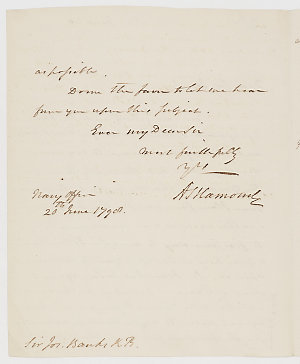 as possible.
Do me the favor to let me hear
from you upon this subject.
Ever my Dear Sir
most faithfully
Yrs
ASHamond
Navy Office
20th June 1798.
Sir Jos. Banks K.B.